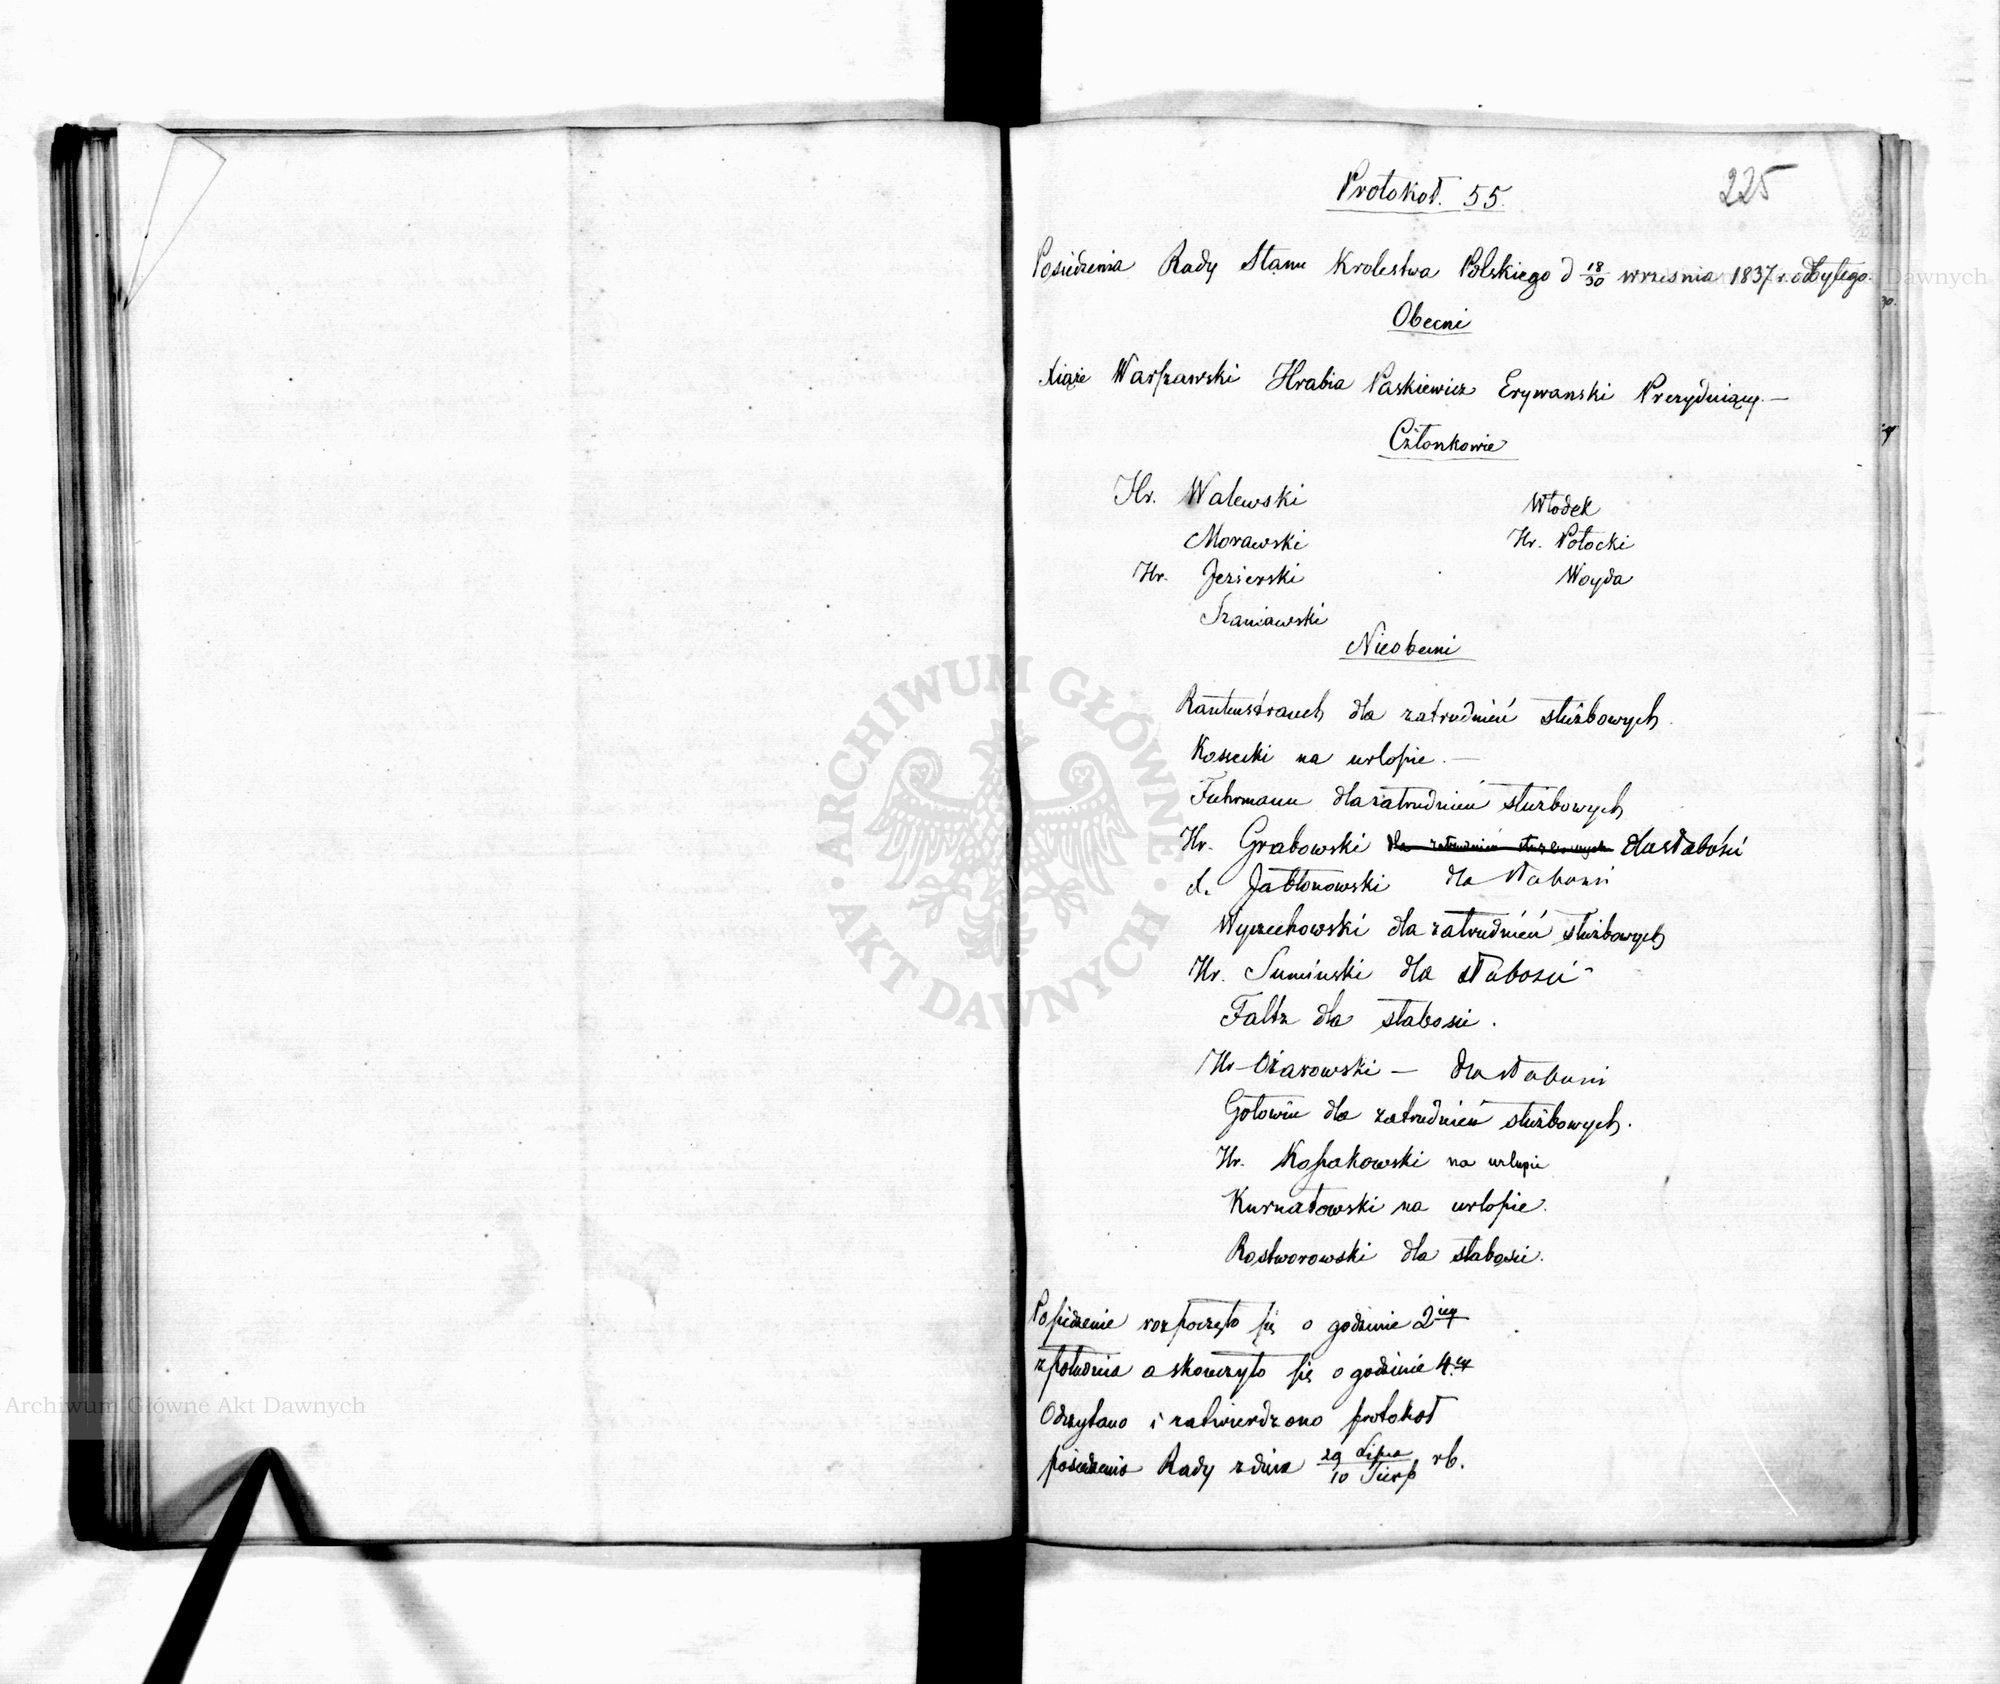 225
Protokoł. 55.
Posiedzenia Rady Stanu Krolestwa Polskiego d 18/30 wrzesnia 1837 r. odbytego.
Obecni
Xiąże Warszawski Hrabia Paskiewicz Erywanski Prezyduiący. —
Członkowie
Hr. Walewski Włodek
Morawski Hr. Potocki
Hr. Jezierski Woyda
Szaniawski
Nieobecni
Rautenstrauch dla zatrudnień służbowych.
Kossecki na urlopie. —
Fuhrmann dla zatrudnień służbowych
Hr. Grabowski dla zatrudnień służbowych dla słabości
X. Jabłonowski dla słabosci
Wyczechowski dla zatrudnień służbowych
Hr. Suminski dla słabości
Faltz dla słabosci.
Hr Ożarowski — dla słabosci
Gołowin dla zatrudnień służbowych.
Hr. Kossakowski na urlopie
Kurnatowski na urlopie.
Rostworowski dla słabości.
Posiedzenie rozpoczęto się o godzinie 2iey
z południa a skończyło się o godzinie 4.ey
Odczytano i zatwierdzono protokoł
posiedzenia Rady z dnia 29 Lipca/10 Sierp rb.
Archiwum Główne Akt Dawnych
ARCHIWUM GŁÓWNE
AKT DAWNYCH